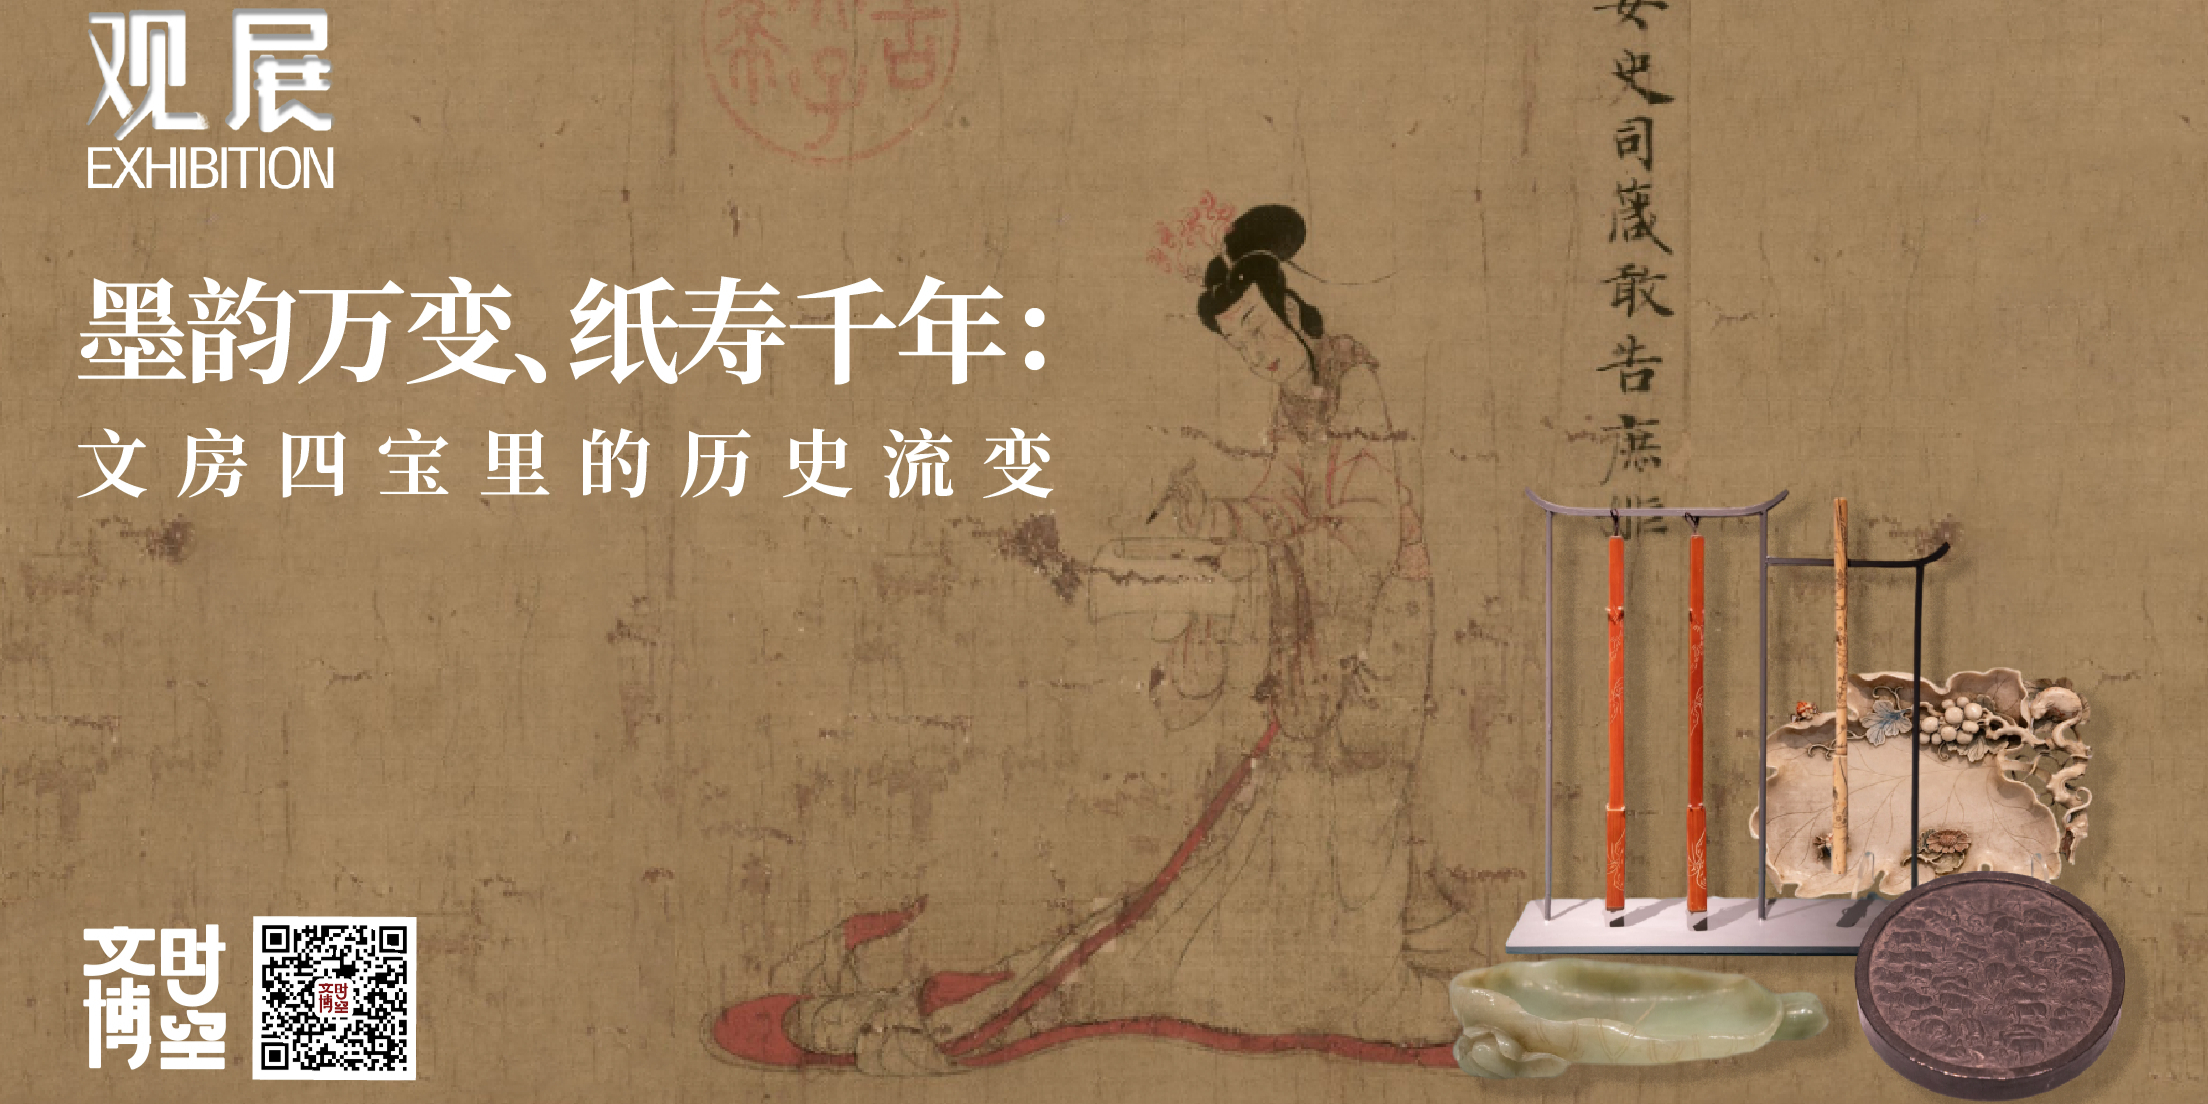 观展
EXHIBITION
墨韵万变、纸寿千年：
文房四宝里的历史流变
女史司箴敢告庶
文博时空
文博时空